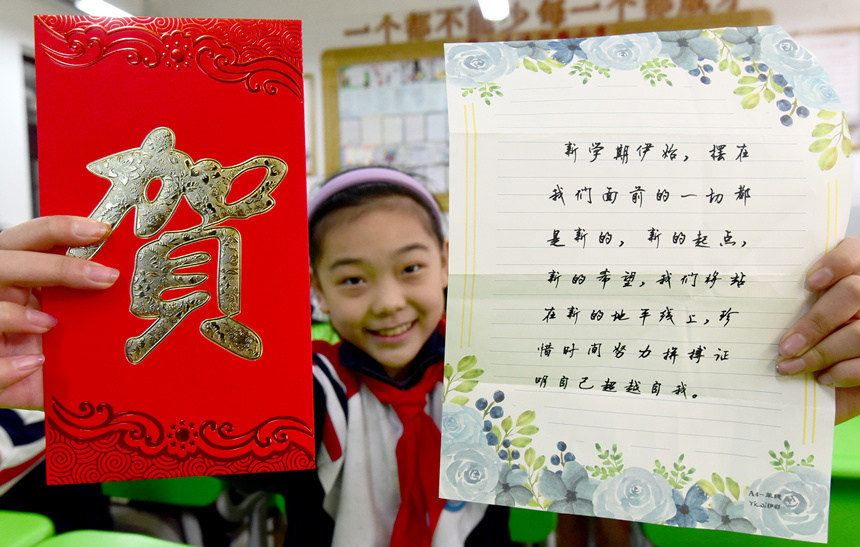 一个都不能少每一个都成才
贺
新学期伊始，摆在
我们面前的一切都
是新的，新的起点，
新的希望，我们将站
在新的地平线上，珍
惜时间努力拼搏证
明自己超越自我。